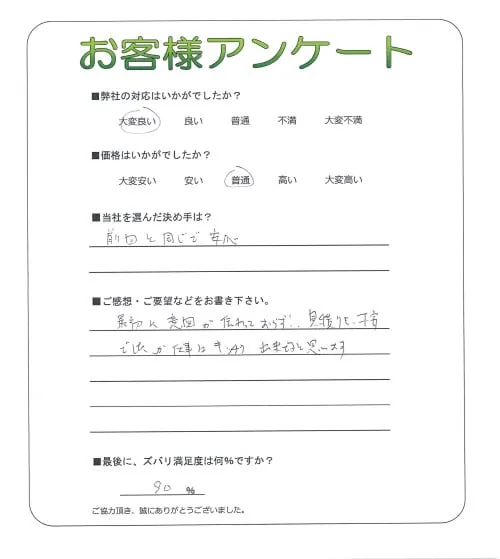 お客様アンケート
■弊社の対応はいかがでしたか？
大変良い 良い 普通 不満 大変不満
■価格はいかがでしたか？
大変安い 安い 普通 高い 大変高い
■当社を選んだ決め手は？
前回と同じで安心
■ご感想・ご要望などをお書き下さい。
最初に意図が伝わっておらず、見積りも
が仕事はキッチリ出来たと思います
■最後に、ズバリ満足度は何%ですか？
90 %
ご協力頂き、誠にありがとうございました。